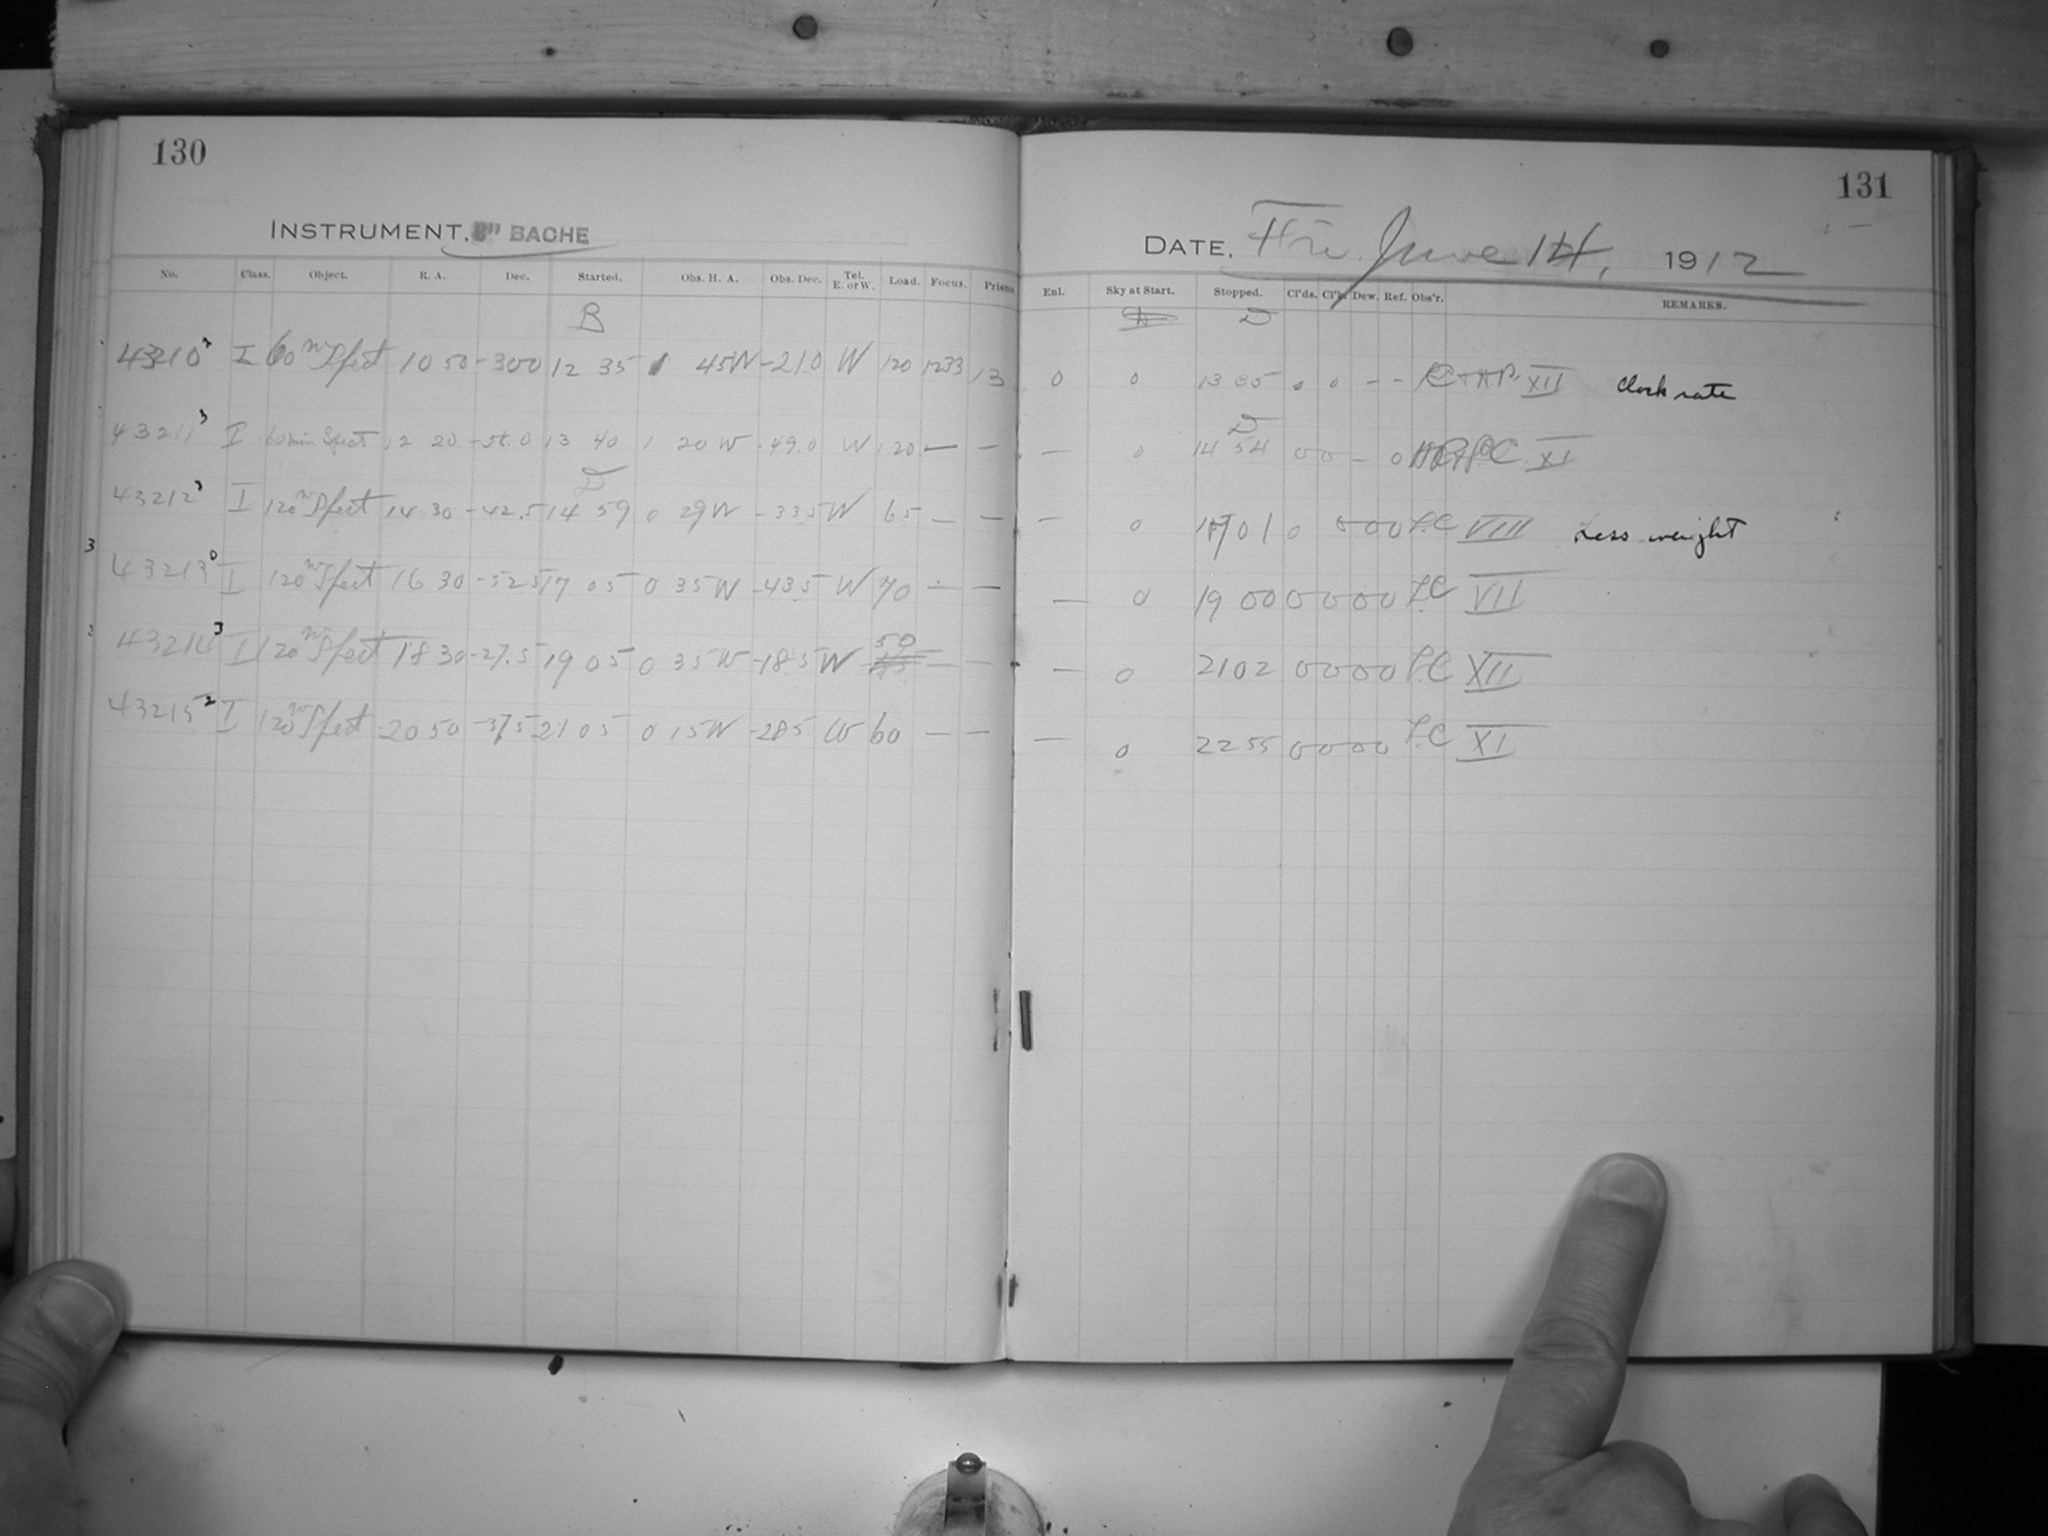 130
INSTRUMENT, 8" BACHE
No. Class. Object. R. A. Dec. Started. Obs. H. A. Obs. Dec. Tel. E. or W. Load. Focus. Prisms
B
43210 I 60 m Spect 10 50 -300 12 35 45W -21.0 W 120 1233 13
43211 3 I 60 min Spect 12 20 13 40 1 20 W -49.0 W 120 — —
D
43212 3 I 120 m Spect 14 30 -42.5 14 59 0 29W -33.5 W 65 — —
3 43213 0 I 120 m Spect 16 30 -525 17 05 0 35W -435 W 70 — —
43214 3 I 120 m Spect 18 30 -27.5 19 05 0 35W -18.5 W 50 — —
43215 2 I 120 m Spect 20 50 -375 21 05 0 15W -285 W 60 — —
131
DATE, Fri. June 14, 1912
Enl. Sky at Start. Stopped. Cl'ds. Cl'k. Dew. Ref. Obs'r. REMARKS.
D
0 0 13 35 0 0 - - XII Clock rate
D
— 0 14 54 0 0 – 0 XI
— 0 17 01 0 0 0 0 L.C VIII Less weight
— 0 19 00 0 0 0 0 L.C VII
— 0 21 02 0 0 0 0 L.C XII
— 0 22 55 0 0 0 0 L.C XI